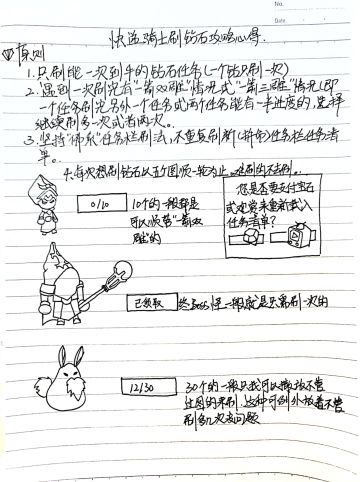 No.
Date
快递骑士刷钻石攻略心得
① 原则
1.只刷能一次到手的钻石任务(一个钻只刷一次)
2.遇到一次刷完有"一箭双雕"情况或"一箭三雕"情况(即
一个任务刷完另外一个任务或两个任务能有一半进度的,选择
继续刷多一次或者两次。
3.坚持"俱乐"任务栏刷法,不重复刷新(拼命)任务栏任务清
单。
4.每次想刷钻石以五个图顺一轮为止,难刷的不去刷。
0/10
10个的一般都是
可以顺带"一箭双
雕"的
您是否要支付宝石
或观看来重新载入
任务清单?
已领取
终极boss怪一般就是只需刷一次的
12/30
30个的一般只我可以
注图的来刷,这种可例外放着不管
刷多几次没问题